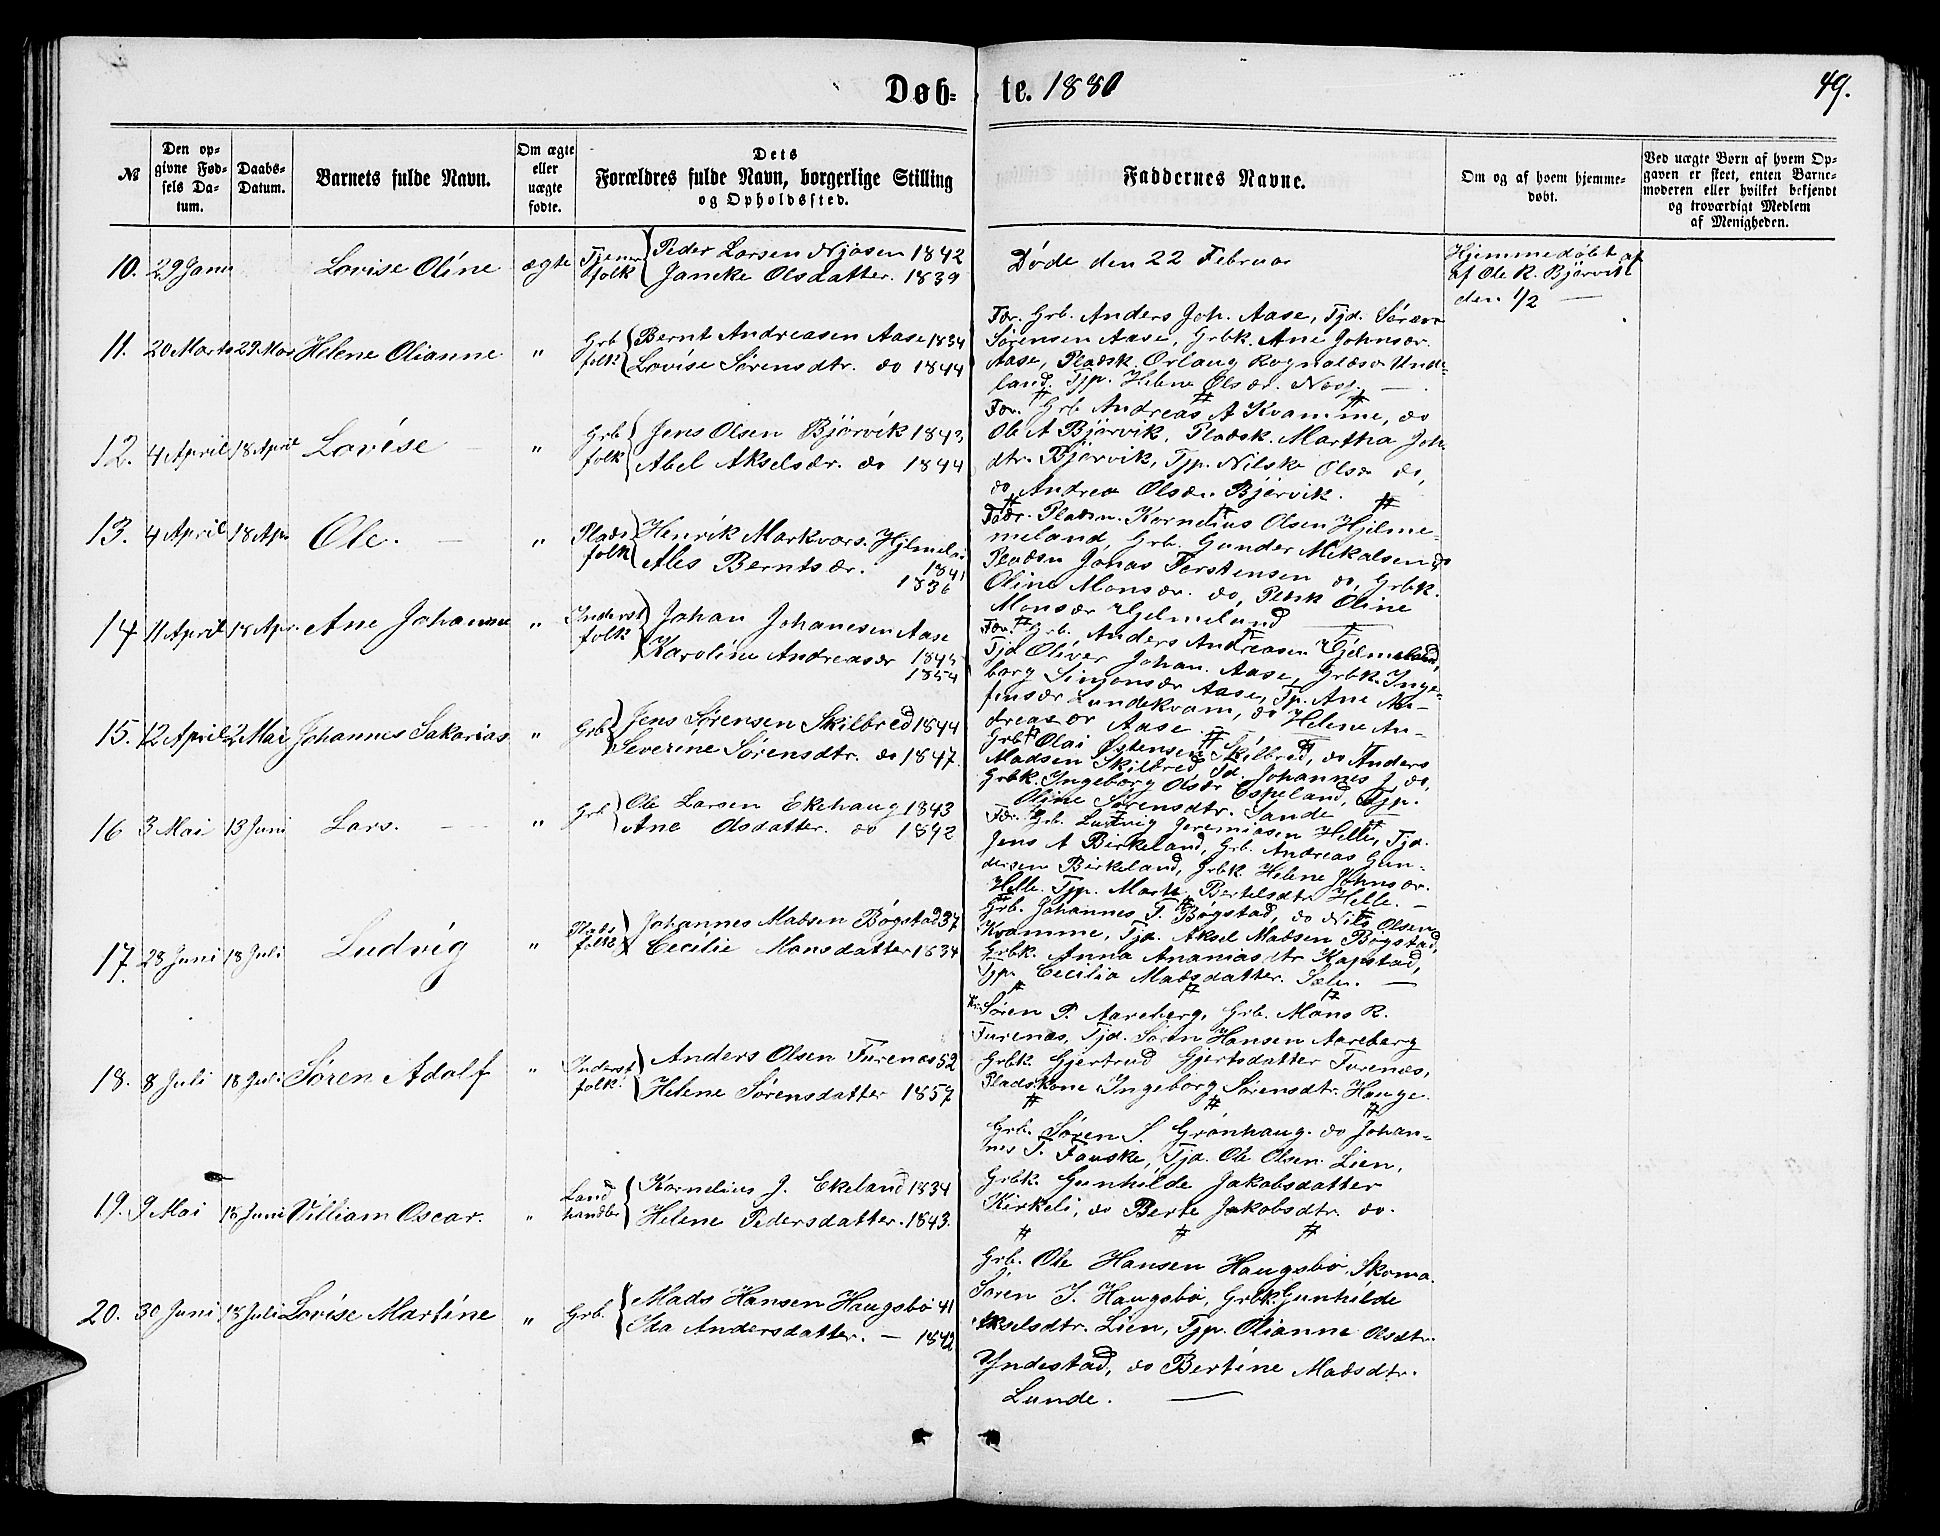 Døb- te. 1880
49.
№
Den opgivne Fødsels Datum.
Daabs-Datum.
Barnets fulde Navn.
Om ægte eller uægte fødte.
Dets Forældres fulde Navn, borgerlige Stilling og Opholdssted.
Faddernes Navne.
Om og af hvem hjemmedøbt.
Ved uægte Børn af hvem Opgaven er skeet, enten Barnemoderen eller hvilket bekjendt og troværdigt Medlem af Menigheden.
10. 29 Janu Lovise Oline ægte Tjener folk Peder Larsen Njøsen 1842
Janeke Olsdatter. 1839
Døde den 22 Februar
Hjemmedøbt af
af Ole R. Bjørvik
den 1/2 —
11. 20 Marts 29 Mar Helene Olianne " Grb folk Bernt Andreasen Aase 1834
Lovise Sørensdtr. do 1844
Fær. Grb. Anders Joh. Aase, Tjd. Søren
Sørensen Aase, Grbk. Ane Johnsdr.
Aase, Pladsk. Orlaug Rognaldsdr Unde-
land. Tjp. Helene Olsdr. Nes
12. 4 April 18 April Lovise " Grb folk Jens Olsen Bjørvik 1843
Abel Akselsdr. do 1844
Fær. Grb Andreas A Kvamme, do
Ole A Bjørvik, Pladsk. Martha Joh
dtr. Bjørvik, Tjp. Nilske Olsdr do,
do Andrea Olsdr. Bjørvik.
13. 4 April 18 Apr Ole. " Plads folk Henrik Markvars. Hjelmela
1841
Ales Berntsdr.
1836
Fadr. Pladsm. Kornelius Olsen Hjelme-
meland, Grb. Gunder Mikalsen do
Pladsm Jonas Torstensen do, Grbk.
Oline Monsdr. do, Pladsk Oline
Monsdr Hjelmeland
14 11 April 18 Apr. Ane Johanne " Inderst folk Johan Johanesen Aase
Karoline Andreasdr 1845
1854
Fær. Grb. Anders Andreasen Hjelmeland,
Tjd Oliver Johan. Aase, Grbk. Inge-
borg Simonsdr Aase, Tp. Ane
finsdr Lundekvam, do Helene An-
dreasdr Aase
15. 12 April 2 Mai Johannes Sakarias " Grb Jens Sørensen Skilbred 1844
Severine Sørensdtr. do 1847.
Grb Olai Østensen Skilbred, do Anders
Madsen Skilbred, Td. Johannes J do,
Grbk. Ingeborg Olsdr Espeland, Tjp.
Oline Sørensdtr. Sande
16 3 Mai 13 Juni Lars. " Grb Ole Larsen Ekehaug 1843
Ane Olsdatter. do 1842
Fær. Grb. Ludvig Jeremiasen Helle, Tjd.
Jens A Birkeland, Grb. Andreas Gun-
dersen Birkeland, Grbk Helene Johnsdr.
Helle. Tjp. Marte Bertelsdtr Helle. —
17. 28 Juni 18 Juli Ludvig " Plads folk Johannes Madsen Bøgstad 37
Cecilie Monsdatter 1834
Grb. Johannes T. Bøgstad, do Nils Olsen
Kvamme, Tjd. Aksel Madsen Bøgstad,
Grbk. Anna Ananiasdtr Kapstad,
Tjp. Cecilia Madsdatter. Sæle. —
18. 8 Juli 18 Juli Søren Adolf " Inderst folk Anders Olsen Furenes 52
Helene Sørensdatter 1857
Søren P. Aareberg, Grb. Mons R.
Furenes, Tjd. Søren Hansen Aareberg
Grbk Gjertrud Gjertsdatter Furenes,
Pladskone Ingeborg Sørensdtr. Hauge.
19. 9 Mai 18 Juni William Oscar. " Land handler Kornelius J. Ekeland 1834
Helene Pedersdatter. 1843.
Grb. Søren S. Grønhaug. do Johan-
nes T. Fauske, Tjd. Ole Olsen Lien,
Grbk. Gunhilde Jakobsdatter
Kirkeli, do Berte Jakobsdtr. do.
20. 30 Juni 18 Juli Lovise Martine " Grb. Mads Hansen Haugsbø 41
Ida Andersdatter. — 1842
Grb. Ole Hansen Haugsbø, Skoma.
Søren J. Haugsbø, Grbk. Gunhilde
Akselsdtr. Lien, Tjp. Olianne Olsdtr.
Yndestad, do Bertine Madsdtr.
Lunde. —